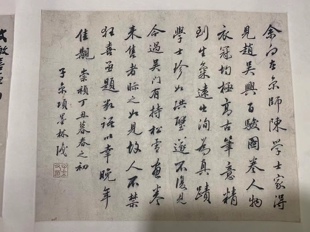 余向在京師陳學士家得
見趙吳興百駿圖卷人物
衣冠均極高古筆意精
到生氣遠出洵為真蹟
學士珍如洪璧遂不復見
今過吳門有持松雪畫卷
來售者眎之如見故人不禁
狂喜亟題數語以幸晚年
佳觀 崇禎丁丑暮春之初
子京項墨林識